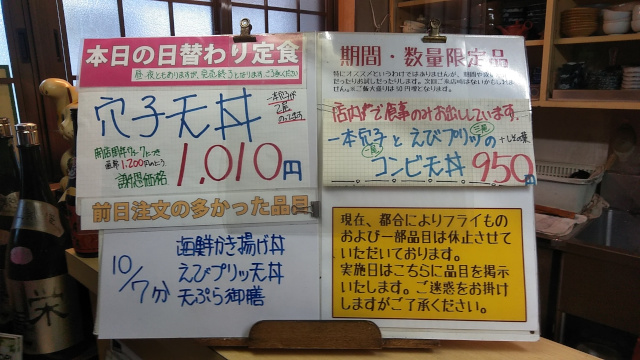 本日の日替わり定食
昼・夜ともありますが、完売終了となります。ご了承ください
穴子天丼
一本穴子が
2尾
のってます
謝恩価格
1,010円
前日注文の多かった品目
10/7分
海鮮かき揚げ丼
えびプリッ天丼
天ぷら御膳
期間・数量限定品
特にオススメというわけではありませんが、期間や数
だったりお試しだったりします。次回ご来店時はないかもしれま
せん。※ご飯大盛りは50円増となります。
店内でお食事のみお出ししています。
一本穴子とえびプリッの
コンビ天丼 950円
現在、都合によりフライもの
および一部品目は休止させて
いただいております。
実施日はこちらに品目を掲示
いたします。ご迷惑をお掛け
しますがご了承ください。
栄